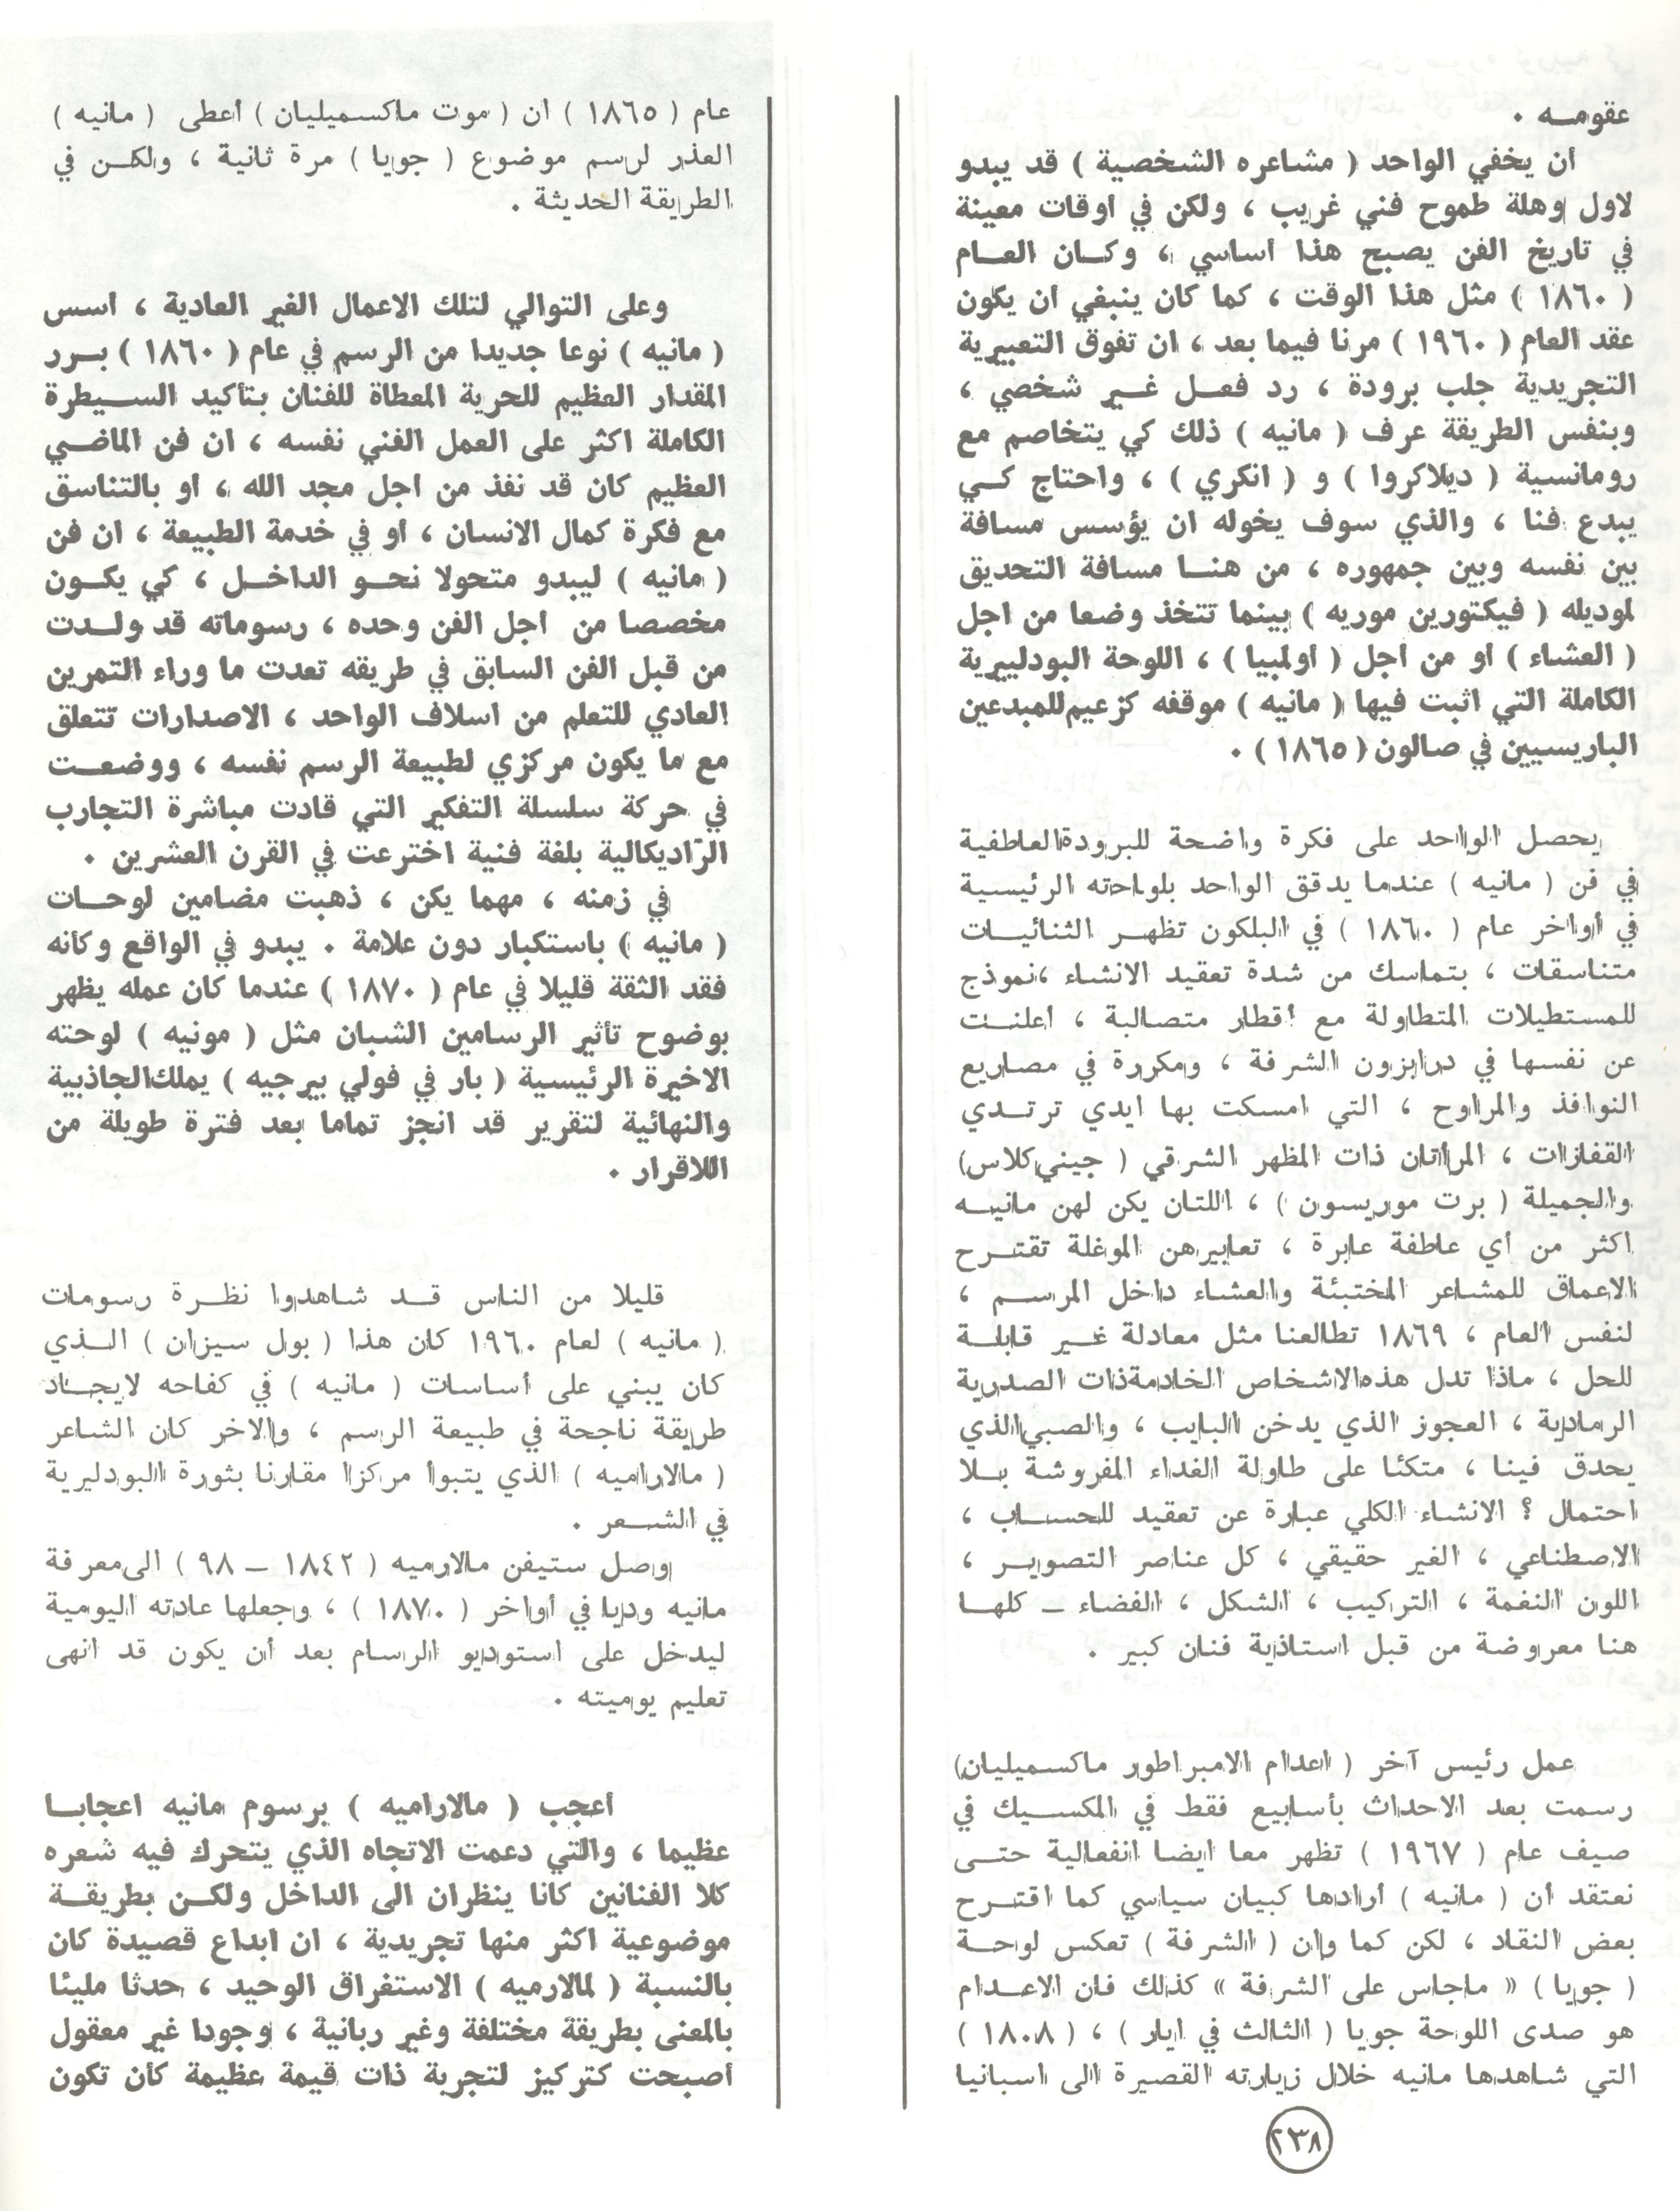 عقومـه .
أن يخفي الواحد ( مشاعره الشخصية ) قد يبدو
لاول وهلة طموح فني غريب ، ولكن في أوقات معينة
في تاريخ الفن يصبح هذا أساسي ، وكـان العـام
( ١٨٦٠ ) مثل هذا الوقت ، كما كان ينبغي أن يكون
عقد العام ( ١٩٦٠ ) مرنا فيما بعد ، ان تفوق التعبيرية
التجريدية جلب برودة ، رد فعـل غـير شخصي ،
وبنفس الطريقة عرف ( مانيه ) ذلك كي يتخاصم مع
رومانسية ( ديلاكروا ) و ( انكري ) ، واحتاج كـي
يبدع فنا ، والذي سوف يخوله ان يؤسس مسافة
بين نفسه وبين جمهوره ، من هنـا مسافة التحديق
لموديله ( فيكتورين موريه ) بينما تتخذ وضعا من اجل
( العشاء ) أو من أجل ( أولمبيا ) ، اللوحة البودليرية
الكاملة التي اثبت فيها ( مانيه ) موقفه كزعيم للمبدعين
الباريسيين في صالون ( ١٨٦٥ ) .
يحصل الواحد على فكرة واضحة للبرودة العاطفية
في فن ( مانيه ) عندما يدقق الواحد بلوحاته الرئيسية
في أواخر عام ( ١٨٦٠ ) في البلكون تظهـر الثنائيـات
متناسقات ، بتماسك من شدة تعقيد الانشاء ،نموذج
للمستطيلات المتطاولة مع أقطار متصالبة ، أعلنـت
عن نفسها في درابزون الشرفة ، ومكررة في مصاريع
النوافذ والمراوح ، التي امسكت بها ايدي ترتـدي
القفازات ، المرأتان ذات المظهر الشرقي ( جيني كلاس)
والجميلة ( برت موريسون ) ، اللتان يكن لهن مانيـه
اكثر من أي عاطفة عابرة ، تعابيرهن الموغلة تقتـرح
الاعماق للمشاعر المختبئة والعشاء داخل المرسـم ،
لنفس العام ، ١٨٦٩ تطالعنا مثل معادلة غـير قابلـة
للحل ، ماذا تدل هذه الاشخاص الخادمة ذات الصدرية
الرمادية ، العجوز الذي يدخن البايب ، والصبي الذي
يحدق فينا ، متكئا على طاولة الغداء المفروشة بـلا
احتمال ؟ الانشاء الكلي عبارة عن تعقيد للحسـاب ،
الاصطناعي ، الغير حقيقي ، كل عناصر التصويـر ،
اللون النغمة ، التركيب ، الشكل ، الفضاء ـ كلهـا
هنا معروضة من قبل استاذية فنان كبير .
عمل رئيس آخر ( اعدام الامبراطور ماكسميليان)
رسمت بعد الاحداث بأسابيع فقط في المكسـيك في
صيف عام ( ١٩٦٧ ) تظهر معا ايضا انفعالية حتـى
نعتقد أن ( مانيه ) أرادها كبيان سياسي كما اقتـرح
بعض النقاد ، لكن كما وان ( الشرفة ) تعكس لوحـة
( جويا ) « ماجاس على الشرفة » كذلك فان الاعـدام
هو صدى اللوحة جويا ( الثالث في ايار ) ، ( ١٨٠٨ )
التي شاهدها مانيه خلال زيارته القصيرة الى اسبانيا
عام ( ١٨٦٥ ) ان ( موت ماكسميليان ) أعطى ( مانيه )
العذر لرسم موضوع ( جويا ) مرة ثانية ، ولكـن في
الطريقة الحديثة .
وعلى التوالي لتلك الاعمال الغير العادية ، أسس
( مانيه ) نوعا جديدا من الرسم في عام ( ١٨٦٠ ) بـرر
المقدار العظيم للحرية المعطاة للفنان بتأكيد السـيطرة
الكاملة اكثر على العمل الفني نفسه ، ان فن الماضـي
العظيم كان قد نفذ من اجل مجد الله ، او بالتناسق
مع فكرة كمال الانسان ، أو في خدمة الطبيعة ، ان فن
( مانيه ) ليبدو متحولا نحـو الداخـل ، كي يكـون
مخصصا من اجل الفن وحده ، رسوماته قد ولـدت
من قبل الفن السابق في طريقه تعدت ما وراء التمرين
العادي للتعلم من اسلاف الواحد ، الاصدارات تتعلق
مع ما يكون مركزي لطبيعة الرسم نفسه ، ووضعـت
في حركة سلسلة التفكير التي قادت مباشرة التجارب
الرّاديكالية بلغة فنية اخترعت في القرن العشرين .
في زمنه ، مهما يكن ، ذهبت مضامين لوحـات
( مانيه ) باستكبار دون علامة . يبدو في الواقع وكأنه
فقد الثقة قليلا في عام ( ١٨٧٠ ) عندما كان عمله يظهر
بوضوح تأثير الرسامين الشبان مثل ( مونيه ) لوحته
الاخيرة الرئيسية ( بار في فولي بيرجيه ) يملك الجاذبية
والنهائية لتقرير قد انجز تماما بعد فترة طويلة من
اللاقرار .
قليلا من الناس قـد شاهدوا نظـرة رسومات
( مانيه ) لعام ١٩٦٠ كان هذا ( بول سيزان ) الـذي
كان يبني على أساسات ( مانيه ) في كفاحه لايجـاد
طريقة ناجحة في طبيعة الرسم ، والاخر كان الشاعر
( مالاراميه ) الذي يتبوأ مركزا مقارنا بثورة البودليرية
في الشـعر .
وصل ستيفن مالارميه ( ١٨٤٢ ـ ٩٨ ) الى معرفة
مانيه وديا في أواخر ( ١٨٧٠ ) ، وجعلها عادته اليومية
ليدخل على استوديو الرسام بعد أن يكون قد انهى
تعليم يوميته .
أعجب ( مالاراميه ) برسوم مانيه اعجابـا
عظيما ، والتي دعمت الاتجاه الذي يتحرك فيه شعره
كلا الفنانين كانا ينظران الى الداخل ولكـن بطريقـة
موضوعية اكثر منها تجريدية ، ان ابداع قصيدة كان
بالنسبة ( لمالارميه ) الاستغراق الوحيد ، حدثا مليئا
بالمعنى بطريقة مختلفة وغير ربانية ، وجودا غير معقول
أصبحت كتركيز لتجربة ذات قيمة عظيمة كأن تكون
٢٣٨